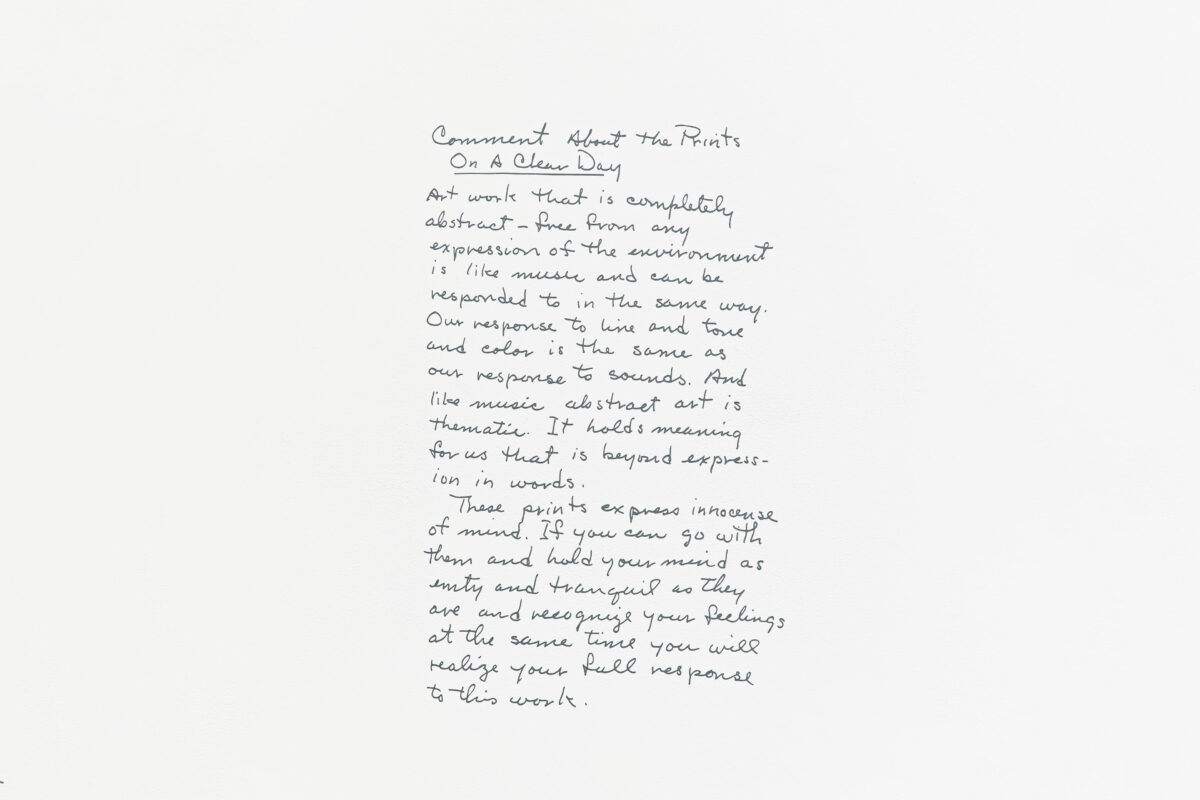 Comment About the Prints
On A Clear Day
Art work that is completely
abstract – free from any
expression of the environment
is like music and can be
responded to in the same way.
Our response to line and tone
and color is the same as
our response to sounds. And
like music abstract art is
thematic. It holds meaning
for us that is beyond express-
ion in words.
These prints express innocense
of mind. If you can go with
them and hold your mind as
emty and tranquil as they
are and recognize your feelings
at the same time you will
realize your full response
to this work.